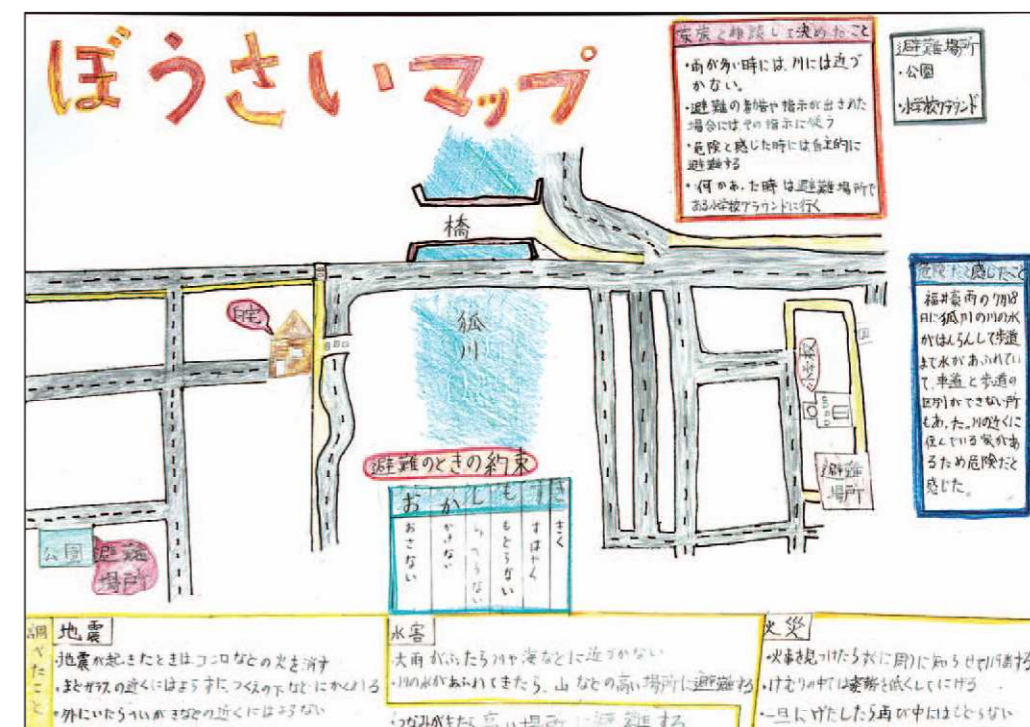 ぼうさいマップ
家族と相談して決めたこと
・雨が多い時には、川には近づ
かない。
・避難の勧告や指示が出された
場合にはその指示に従う
・危険と感じた時には自主的に
避難する
・何かあった時は避難場所で
ある小学校グラウンドに行く
避難場所
・公園
・小学校グラウンド
橋
自宅
狐川
小学校
避難
場所
危険だと感じたこと
福井豪雨の7月18
日に狐川の川の水
がはんらんして歩道
まで水があふれてい
て、車道と歩道の
区別ができない所
もあった。川の近くに
住んでいる家があ
るため危険だと
感じた。
避難のときの約束
おかしもすき
おさない
かけない
しゃべらない
もどらない
すばやく
きく
公園
避難
場所
調べたこと
地震
・地震が起きたときはコンロなどの火を消す
・まどガラスの近くにはよらずに、つくえの下などにかくれる
・外にいたら
などの近くにはよらない
水害
・大雨がふったら川や海などに近づかない
・川の水があふれてきたら、山などの高い場所に避難する
・つなみがきたら高い場所に避難する
火災
・火事を見つけたらすぐに周りに知らせて
・けむりの中では姿勢を低くしてにげる
・一旦にげだしたら再び中にはもどらない